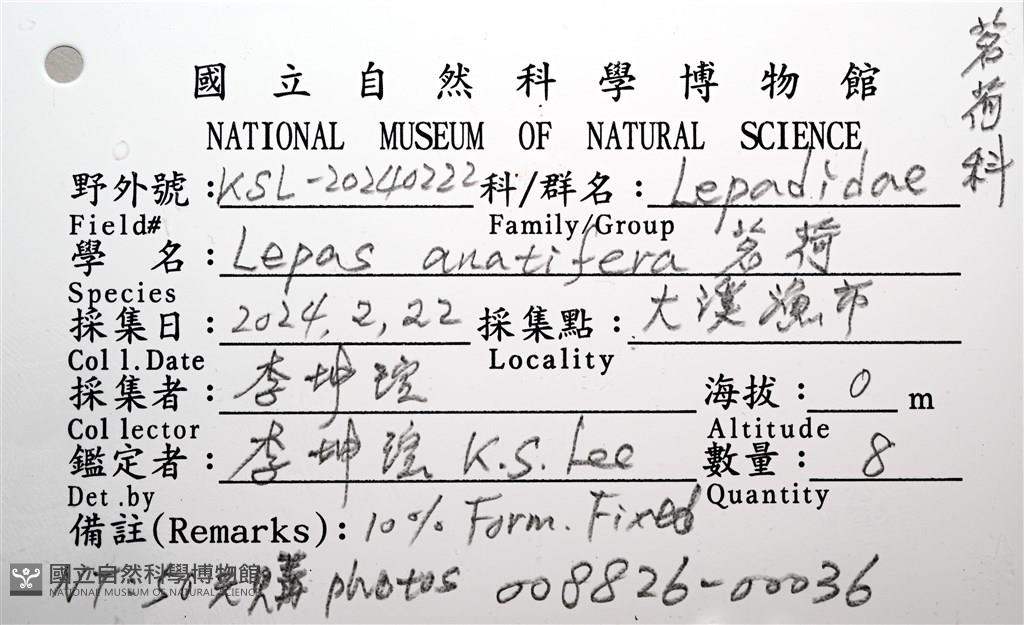 茗荷科
國立自然科學博物館
NATIONAL MUSEUM OF NATURAL SCIENCE
野外號：KSL-20240222 科/群名：Lepadidae
Field# Family/Group
學 名：Lepas anatifera 茗荷
Species
採集日：2024.2.22 採集點：大溪漁市
Coll.Date Locality
採集者：李坤瑄 海拔：0 m
Collector Altitude
鑑定者：李坤瑄 K.S. Lee 數量：8
Det.by Quantity
備註(Remarks)：10% Form. Fixed
photos 008826-00036
國立自然科學博物館
NATIONAL MUSEUM OF NATURAL SCIENCE